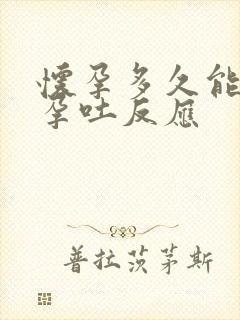 懷孕多久能
孕吐反應
普拉茨茅斯